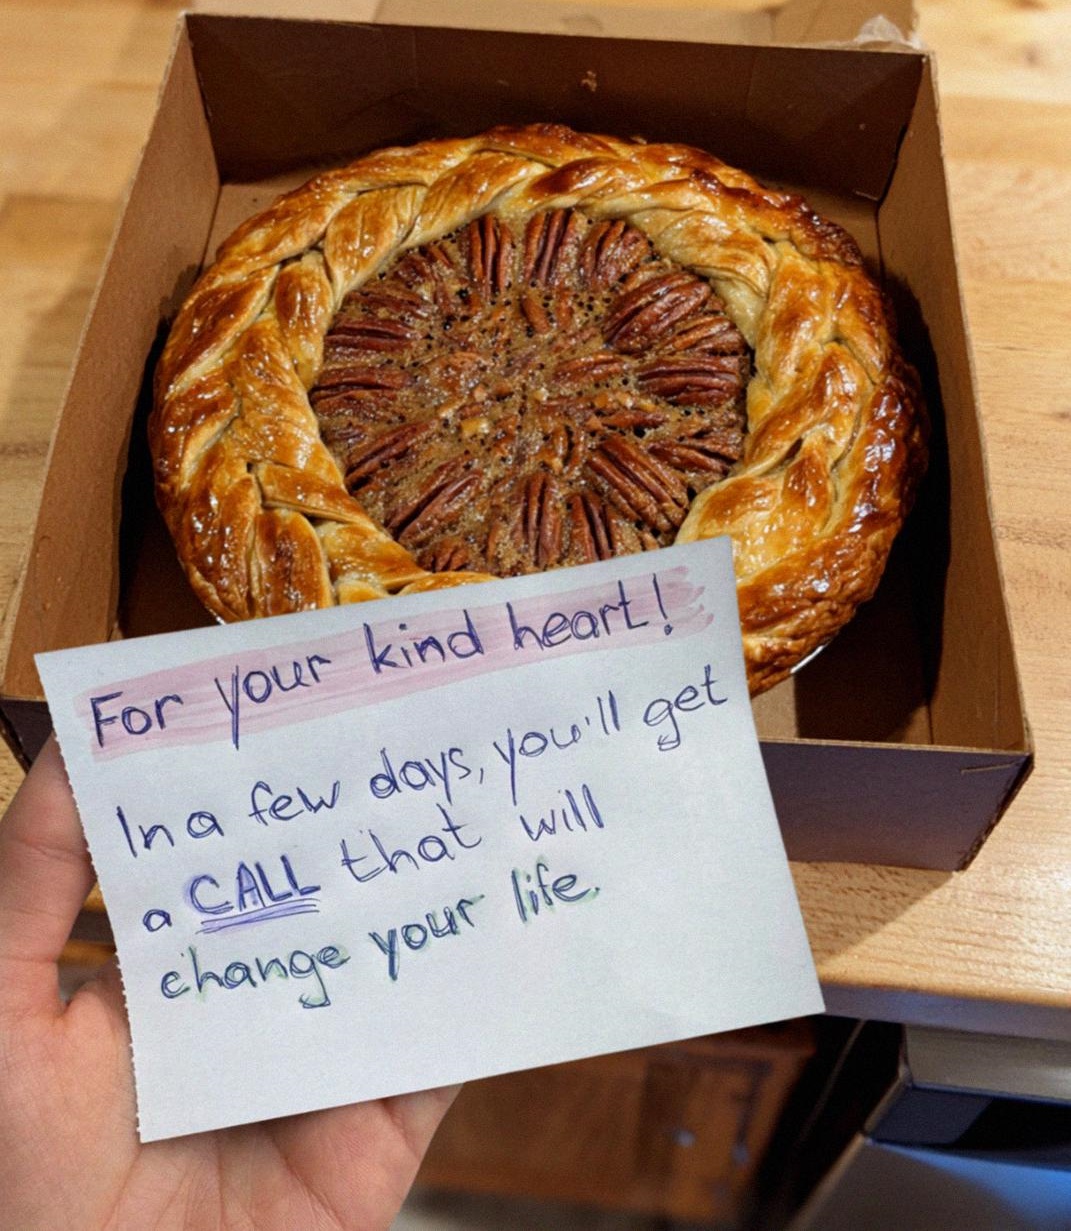 For your kind heart!
In a few days, you'll get
a CALL that will
change your life.